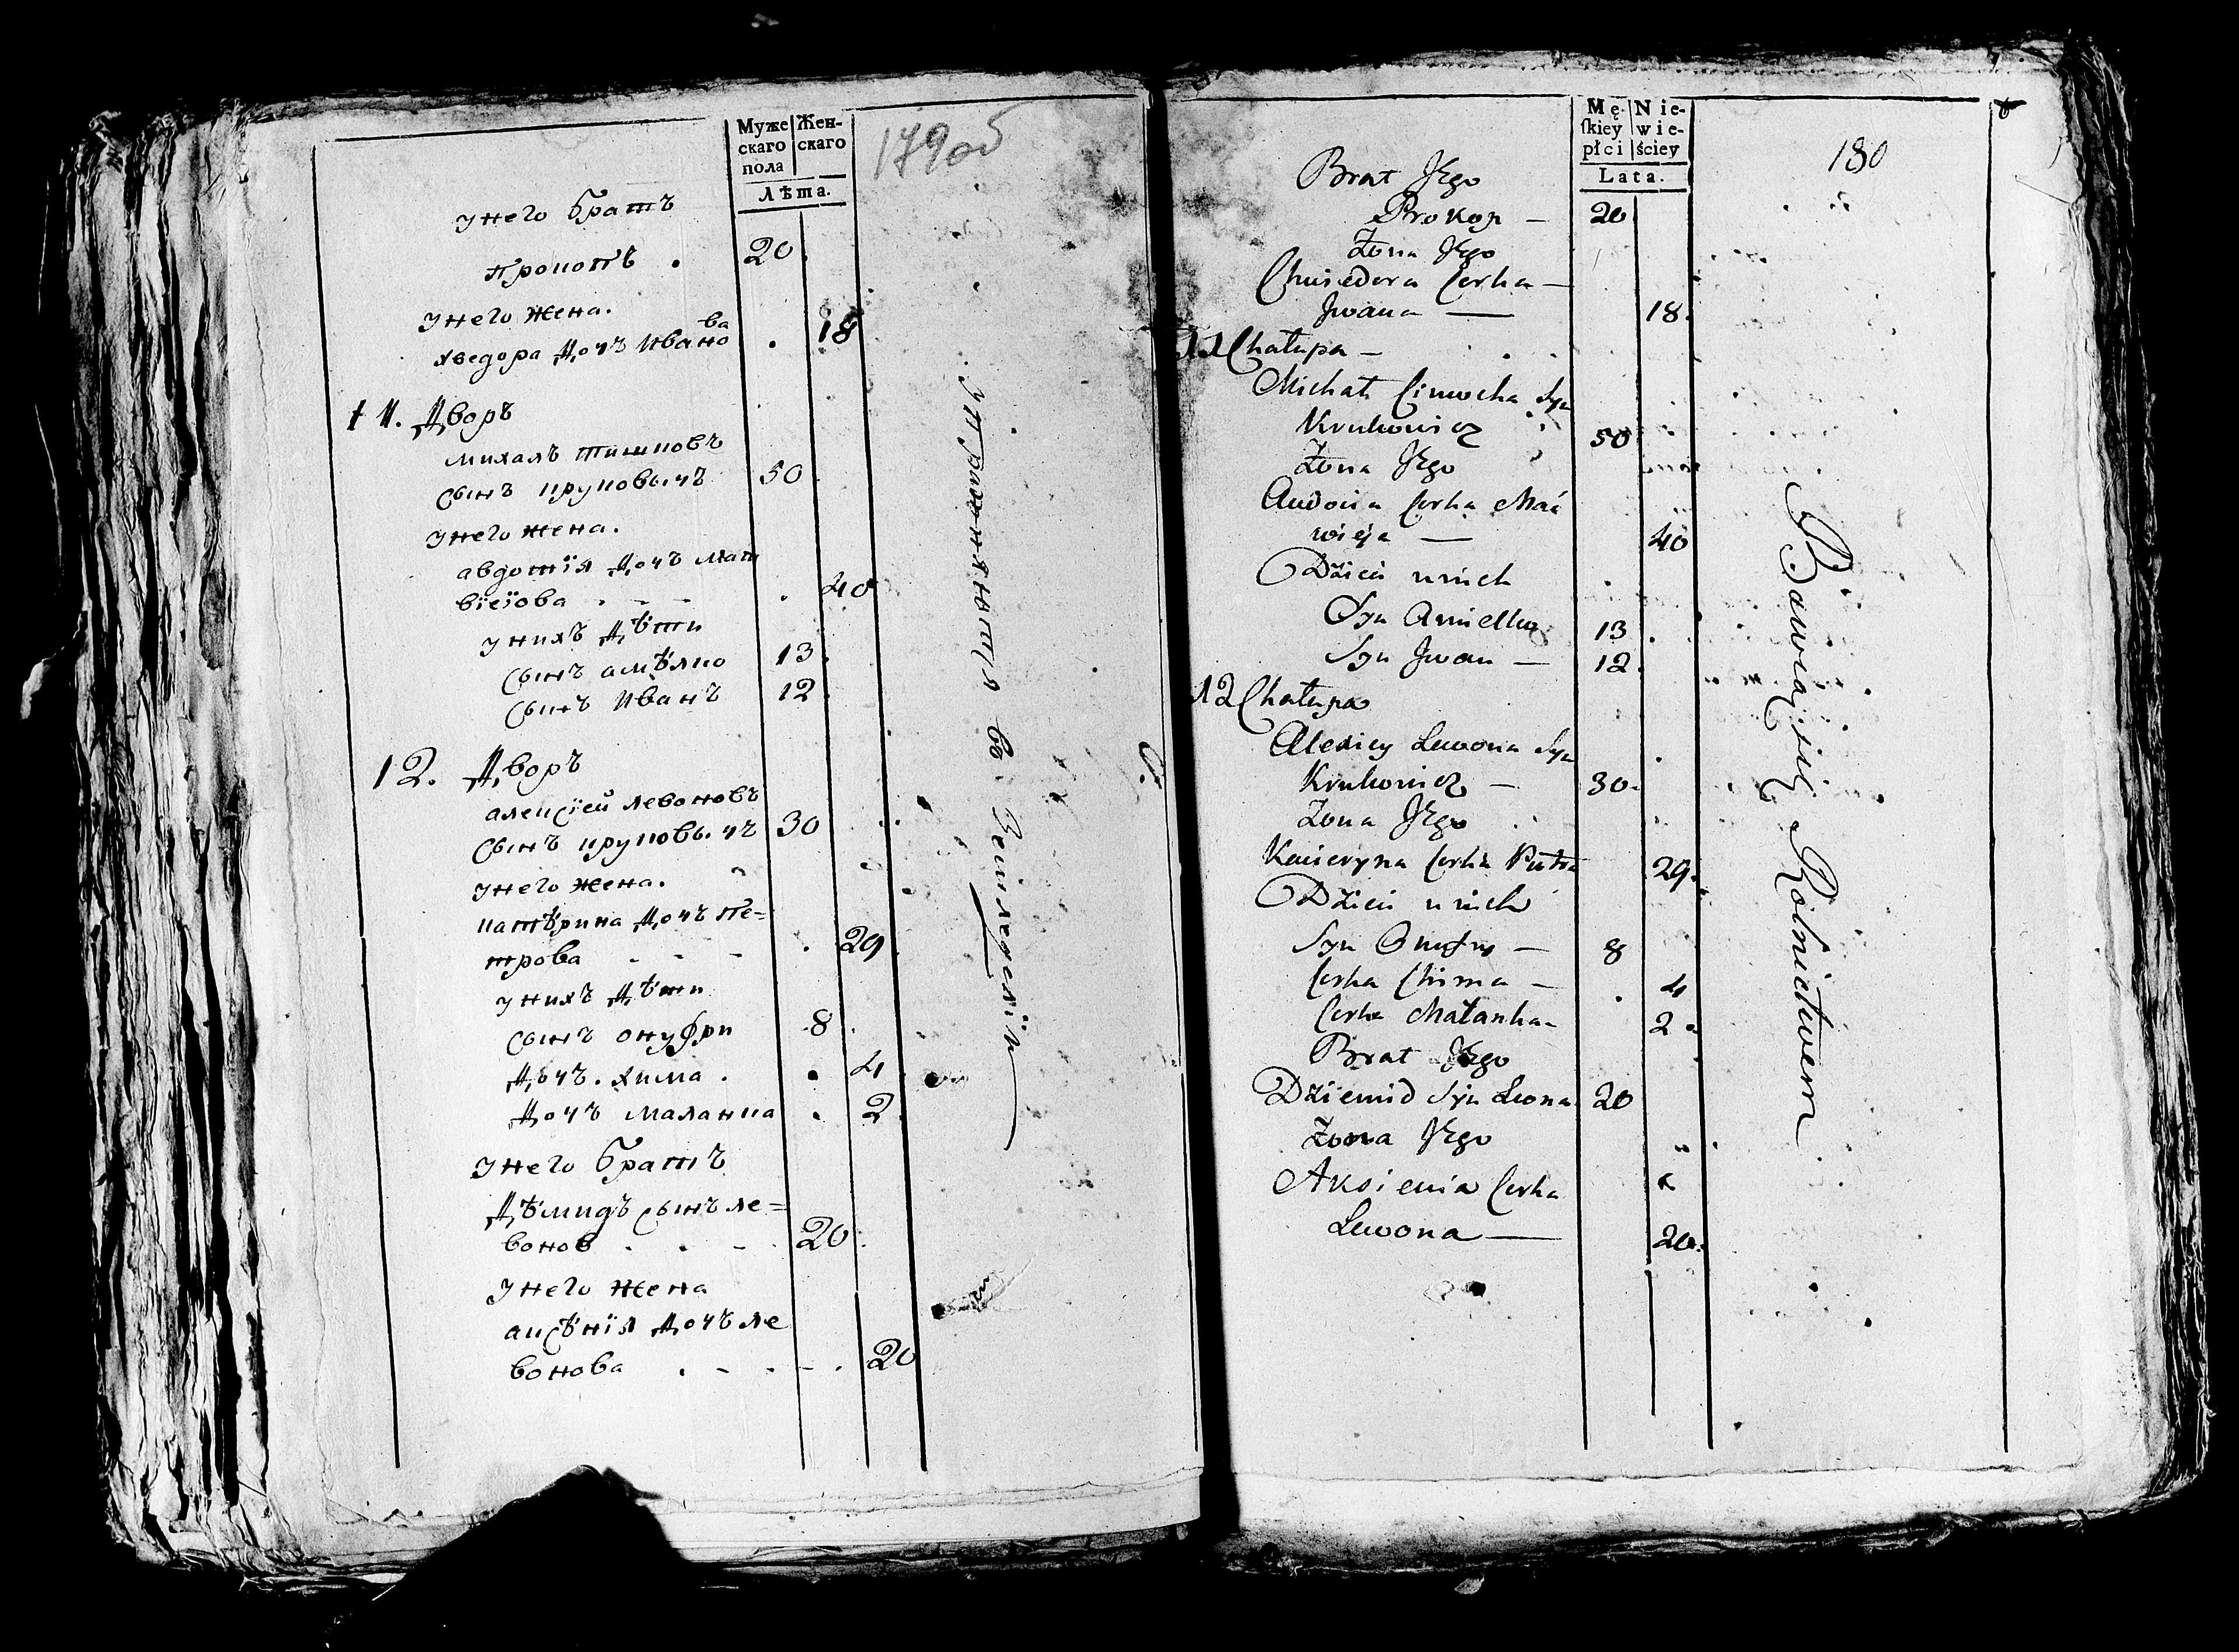 Муже Жен-
скаго скаго
пола
Лѣта.
179об
унего братъ
прокопъ . 20
унего жена.
хведора дочъ Ивано
ва . 18
11. Дворъ
михалъ тимковъ
сынъ круковичъ 50
унего жена.
авдотїя дочъ мат
вїеїова . - - . 40
унихъ дѣти
сынъ амѣлко 13
сынъ Иванъ 12
12. Дворъ
алексїей левоновъ
сынъ круковичъ 30
унего жена.
катѣрина дочъ пе=
трова . - - . 29
унихъ дѣти
сынъ онуфри 8
дочъ. хима . . 4
дочъ маланка . 2
унего братъ
дѣмидъ сынъ ле=
вонов . . - 20
унего жена
аксѣнїя дочъ ле
вонова . - . - . 20
упражняютца въ земледелїи
Mę- Nie-
ſkiey wie-
płci ściey
Lata.
180
Brat Jego
Prokop — 20
Żona Jego
Chwiedora Corka —
Jwana — 18.
11 Chałupa —
Michał Cimocha Syn
Krukowicz 50
Żona Jego
Audocia Corka Mac
wieja — 40
Dzieci u nich
Syn Amielko 13
Syn Jwan — 12
12 Chałupa
Alexiey Lewona Syn
Krukowicz — 30
Żona Jego
Kacieryna Corka Piotra 29.
Dzieci u nich
Syn Onufry — 8
Corka Chima — . 4
Corka Małanka 2
Brat Jego
Dziemid Syn Lewona 20
Żona Jego
Aksienia Corka
Lewona — 20.
Bawią się Rolnictwem